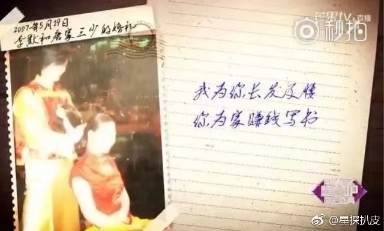 2007年5月29日
李默和唐家三少的婚礼
我为你长发及腰
你为家赚钱写书
秒拍
@星探扒皮